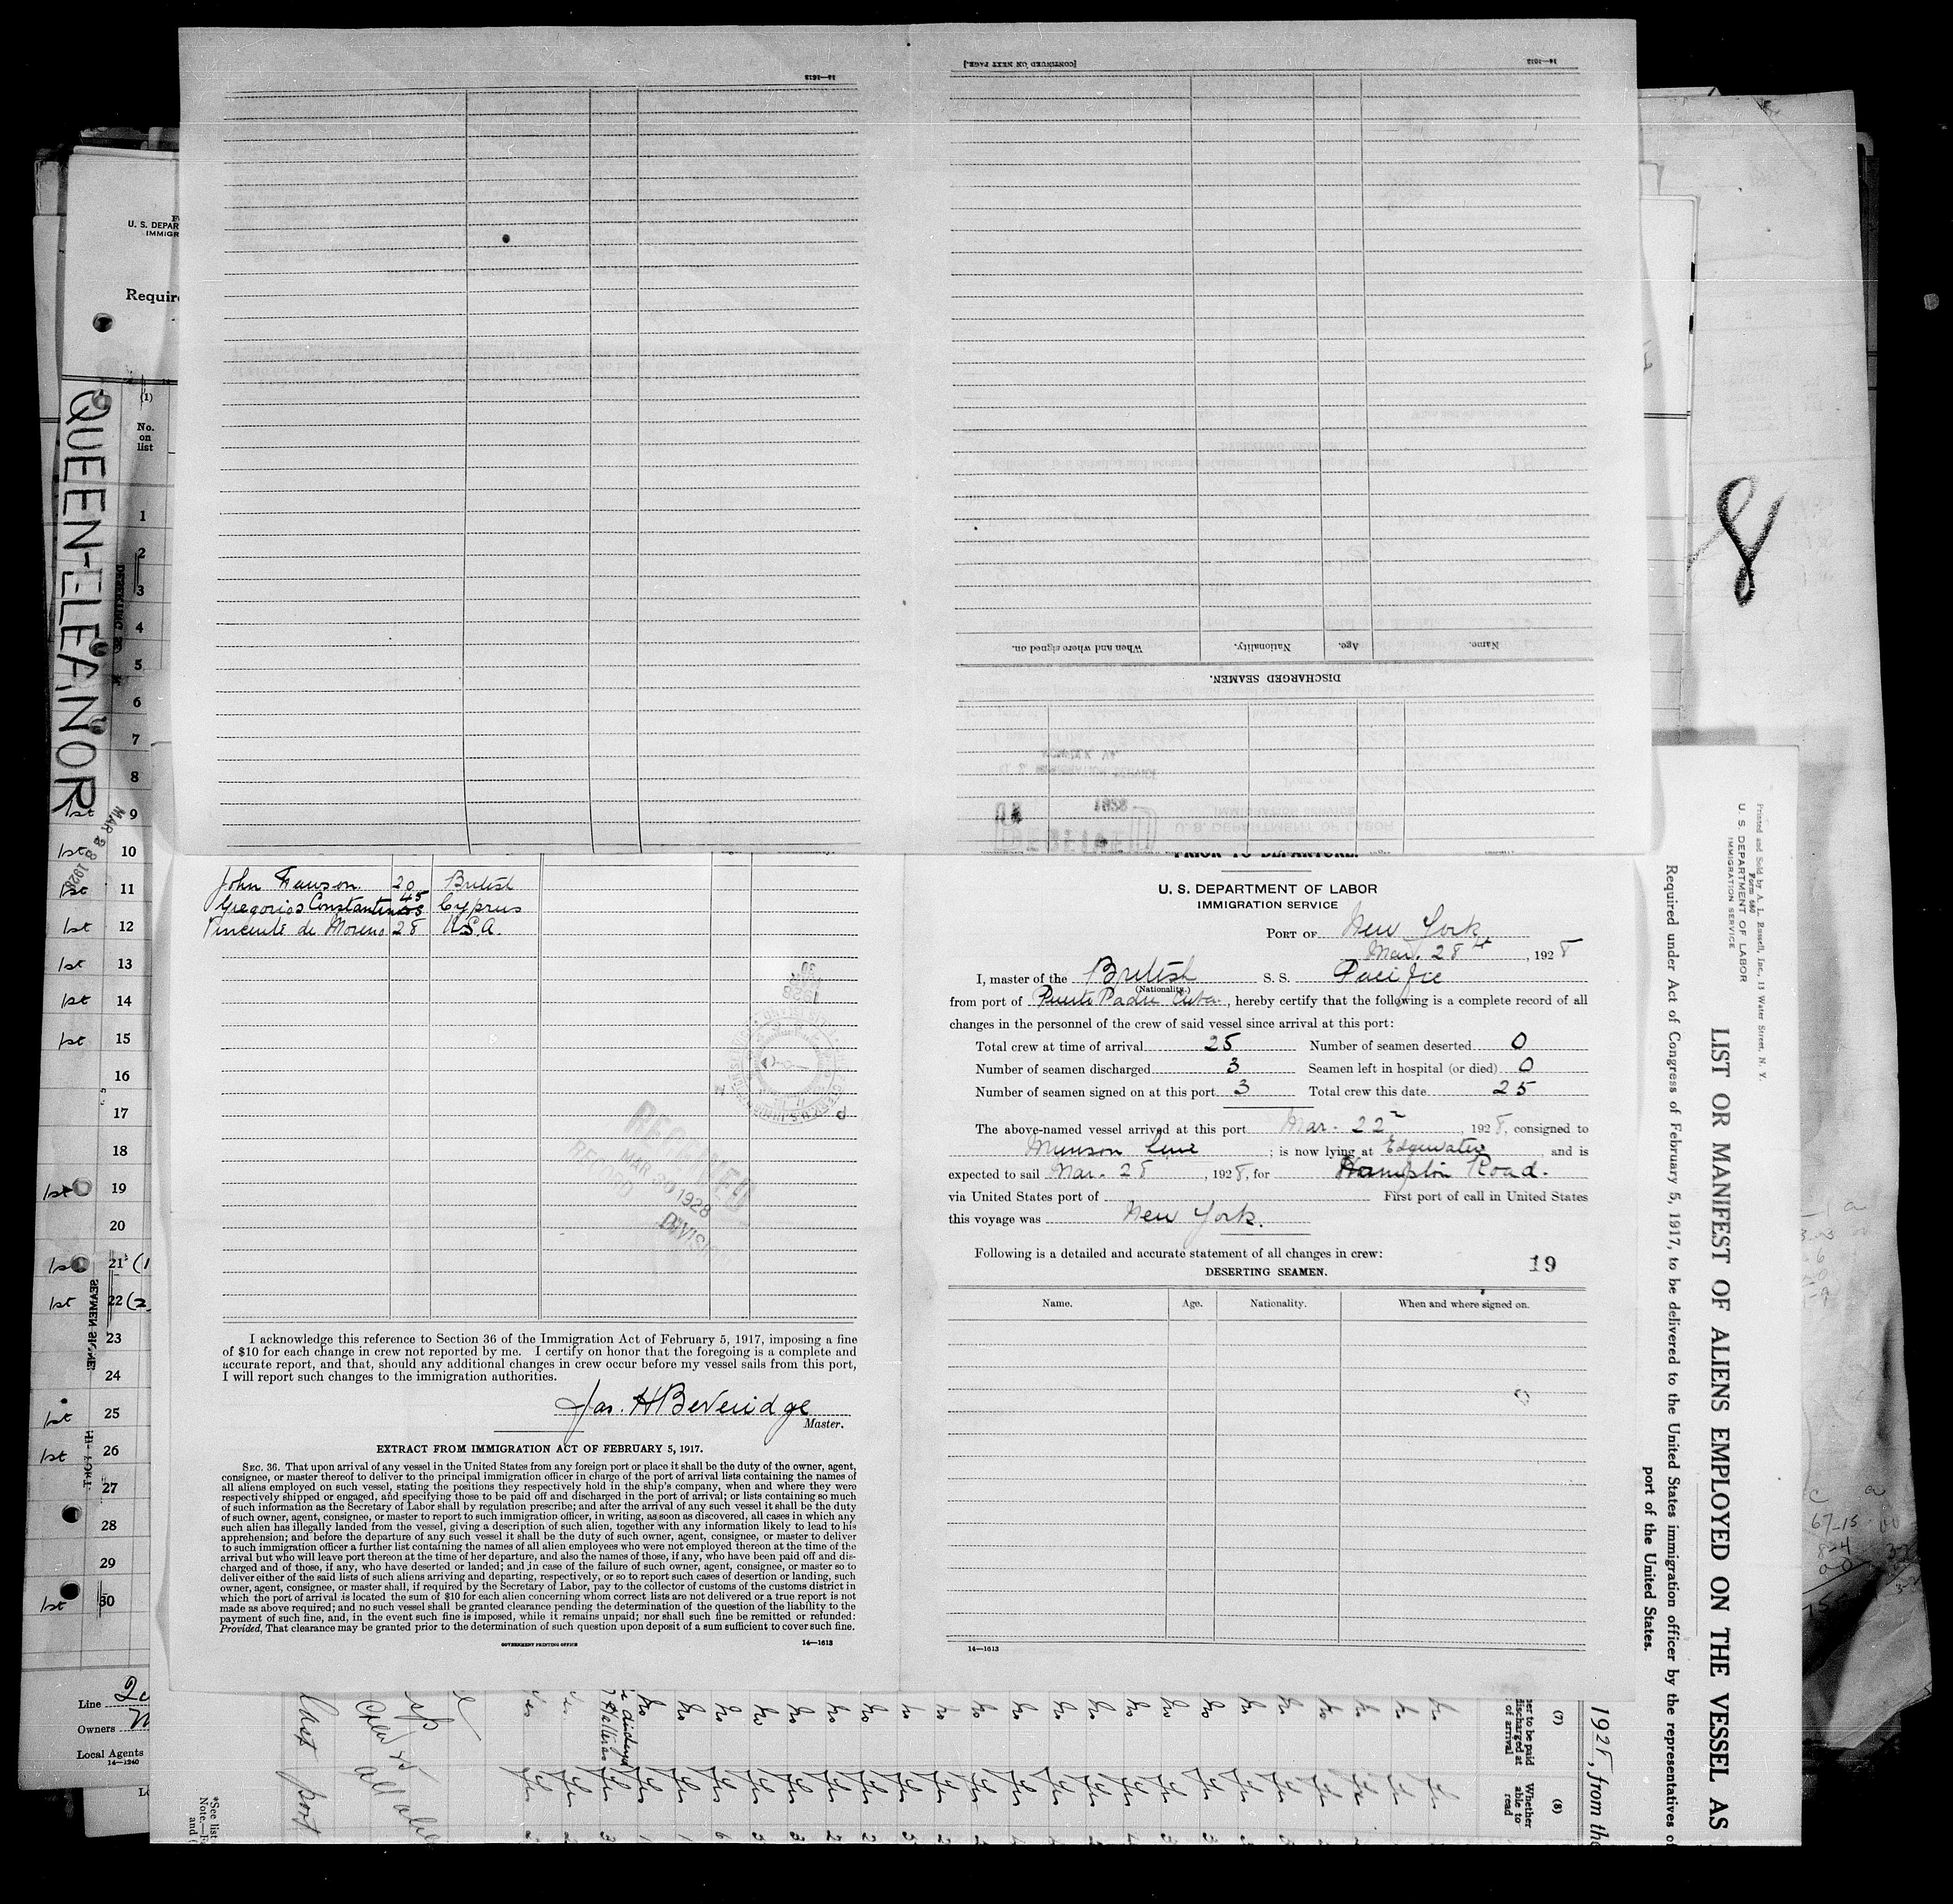 14—1613
[CONTINUED ON NEXT PAGE.]
14—1613
Name.
Age.
Nationality.
When and where signed on.
DISCHARGED SEAMEN.
U. S. DEPAR
IMMIGR
Require
(1)
No.
on
list
QUEEN-ELEANOR
MAR 28 1928
1
2
3
4
5
6
7
8
1st 9
1st 10
1st 11
1st 12
1st 13
1st 14
1st 15
16
17
18
1st 19
20
1st 21 (1
1st 22 (2
23
24
1st 25
1st 26
27
28
29
1st 30
Line
Owners
Local Agents
14—1240
8
John Lawson. 20 British
Gregorios Constantinos 45 Cyprus
Vincente de Moreno 28 U.S.A.
RECEIVED
MAR 30 1928
RECORD
DIVISION
I acknowledge this reference to Section 36 of the Immigration Act of February 5, 1917, imposing a fine
of $10 for each change in crew not reported by me. I certify on honor that the foregoing is a complete and
accurate report, and that, should any additional changes in crew occur before my vessel sails from this port,
I will report such changes to the immigration authorities.
Jas. H Beveridge
Master.
EXTRACT FROM IMMIGRATION ACT OF FEBRUARY 5, 1917.
SEC. 36. That upon arrival of any vessel in the United States from any foreign port or place it shall be the duty of the owner, agent,
consignee, or master thereof to deliver to the principal immigration officer in charge of the port of arrival lists containing the names of
all aliens employed on such vessel, stating the positions they respectively hold in the ship's company, when and where they were
respectively shipped or engaged, and specifying those to be paid off and discharged in the port of arrival; or lists containing so much
of such information as the Secretary of Labor shall by regulation prescribe; and after the arrival of any such vessel it shall be the duty
of such owner, agent, consignee, or master to report to such immigration officer, in writing, as soon as discovered, all cases in which any
such alien has illegally landed from the vessel, giving a description of such alien, together with any information likely to lead to his
apprehension; and before the departure of any such vessel it shall be the duty of such owner, agent, consignee, or master to deliver
to such immigration officer a further list containing the names of all alien employees who were not employed thereon at the time of the
arrival but who will leave port thereon at the time of her departure, and also the names of those, if any, who have been paid off and dis-
charged and of those, if any, who have deserted or landed; and in case of the failure of such owner, agent, consignee, or master so to
deliver either of the said lists of such aliens arriving and departing, respectively, or so to report such cases of desertion or landing, such
owner, agent, consignee, or master shall, if required by the Secretary of Labor, pay to the collector of customs of the customs district in
which the port of arrival is located the sum of $10 for each alien concerning whom correct lists are not delivered or a true report is not
made as above required; and no such vessel shall be granted clearance pending the determination of the question of the liability to the
payment of such fine, and, in the event such fine is imposed, while it remains unpaid; nor shall such fine be remitted or refunded:
Provided, That clearance may be granted prior to the determination of such question upon deposit of a sum sufficient to cover such fine.
GOVERNMENT PRINTING OFFICE
14—1613
PRIOR TO DEPARTURE.
U. S. DEPARTMENT OF LABOR
IMMIGRATION SERVICE
PORT OF New York
Mar. 28, 1928
I, master of the British S. S. Pacific
(Nationality.)
from port of Puerto Padre Cuba, hereby certify that the following is a complete record of all
changes in the personnel of the crew of said vessel since arrival at this port:
Total crew at time of arrival 25 Number of seamen deserted 0
Number of seamen discharged 3 Seamen left in hospital (or died) 0
Number of seamen signed on at this port 3 Total crew this date 25
The above-named vessel arrived at this port Mar. 22, 1928, consigned to
Munson Line; is now lying at Edgewater, and is
expected to sail Mar. 28, 1928, for Hampton Road.
via United States port of First port of call in United States
this voyage was New York.
Following is a detailed and accurate statement of all changes in crew:
DESERTING SEAMEN.
19
Name. Age. Nationality. When and where signed on.
14—1613
Printed and Sold by A. L. Russell, Inc., 13 Water Street, N. Y.
Form 680
U. S. DEPARTMENT OF LABOR
IMMIGRATION SERVICE
LIST OR MANIFEST OF ALIENS EMPLOYED ON THE VESSEL AS
Required under Act of Congress of February 5, 1917, to be delivered to the United States immigration officer by the representatives of
port of the United States.
1928, from the
(7)
discharged at
of arrival
(8)
Whether
able to
read
last port
*See list
Note.
and (